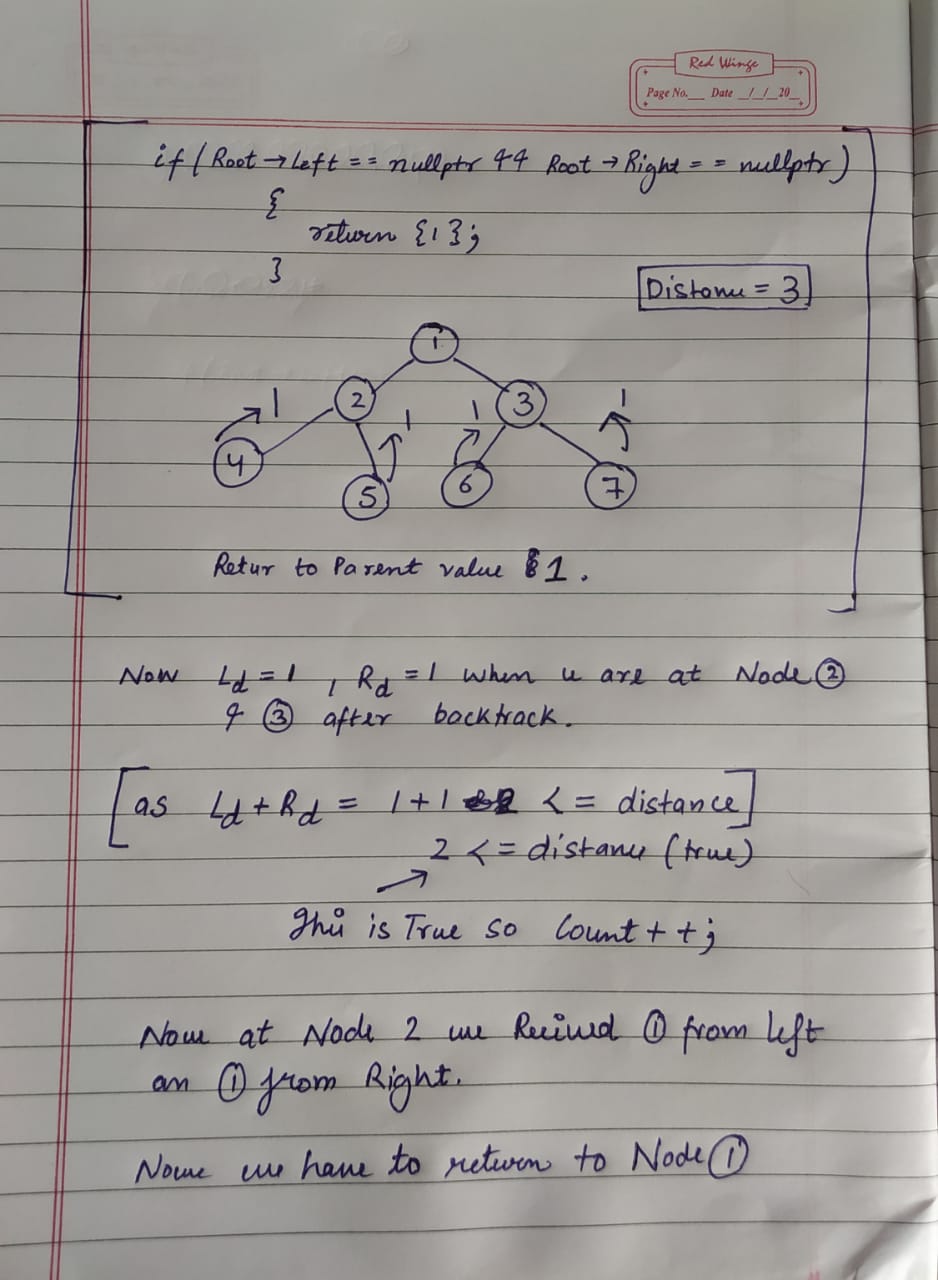 Red Wings
Page No.__ Date _/_/_20_
if ( Root → Left == nullptr && Root → Right == nullptr )
{
return {1};
}
Distance = 3
1
1 2 1 1 3 1
4 5 6 7
Retur to Parent value 1.
Now Ld = 1 , Rd = 1 when u are at Node ②
& ③ after backtrack.
[as Ld + Rd = 1 + 1 <= distance]
2 <= distance (true)
This is True so Count++;
Now at Node 2 we Recived ① from left
an ① from Right.
Now we have to return to Node ①